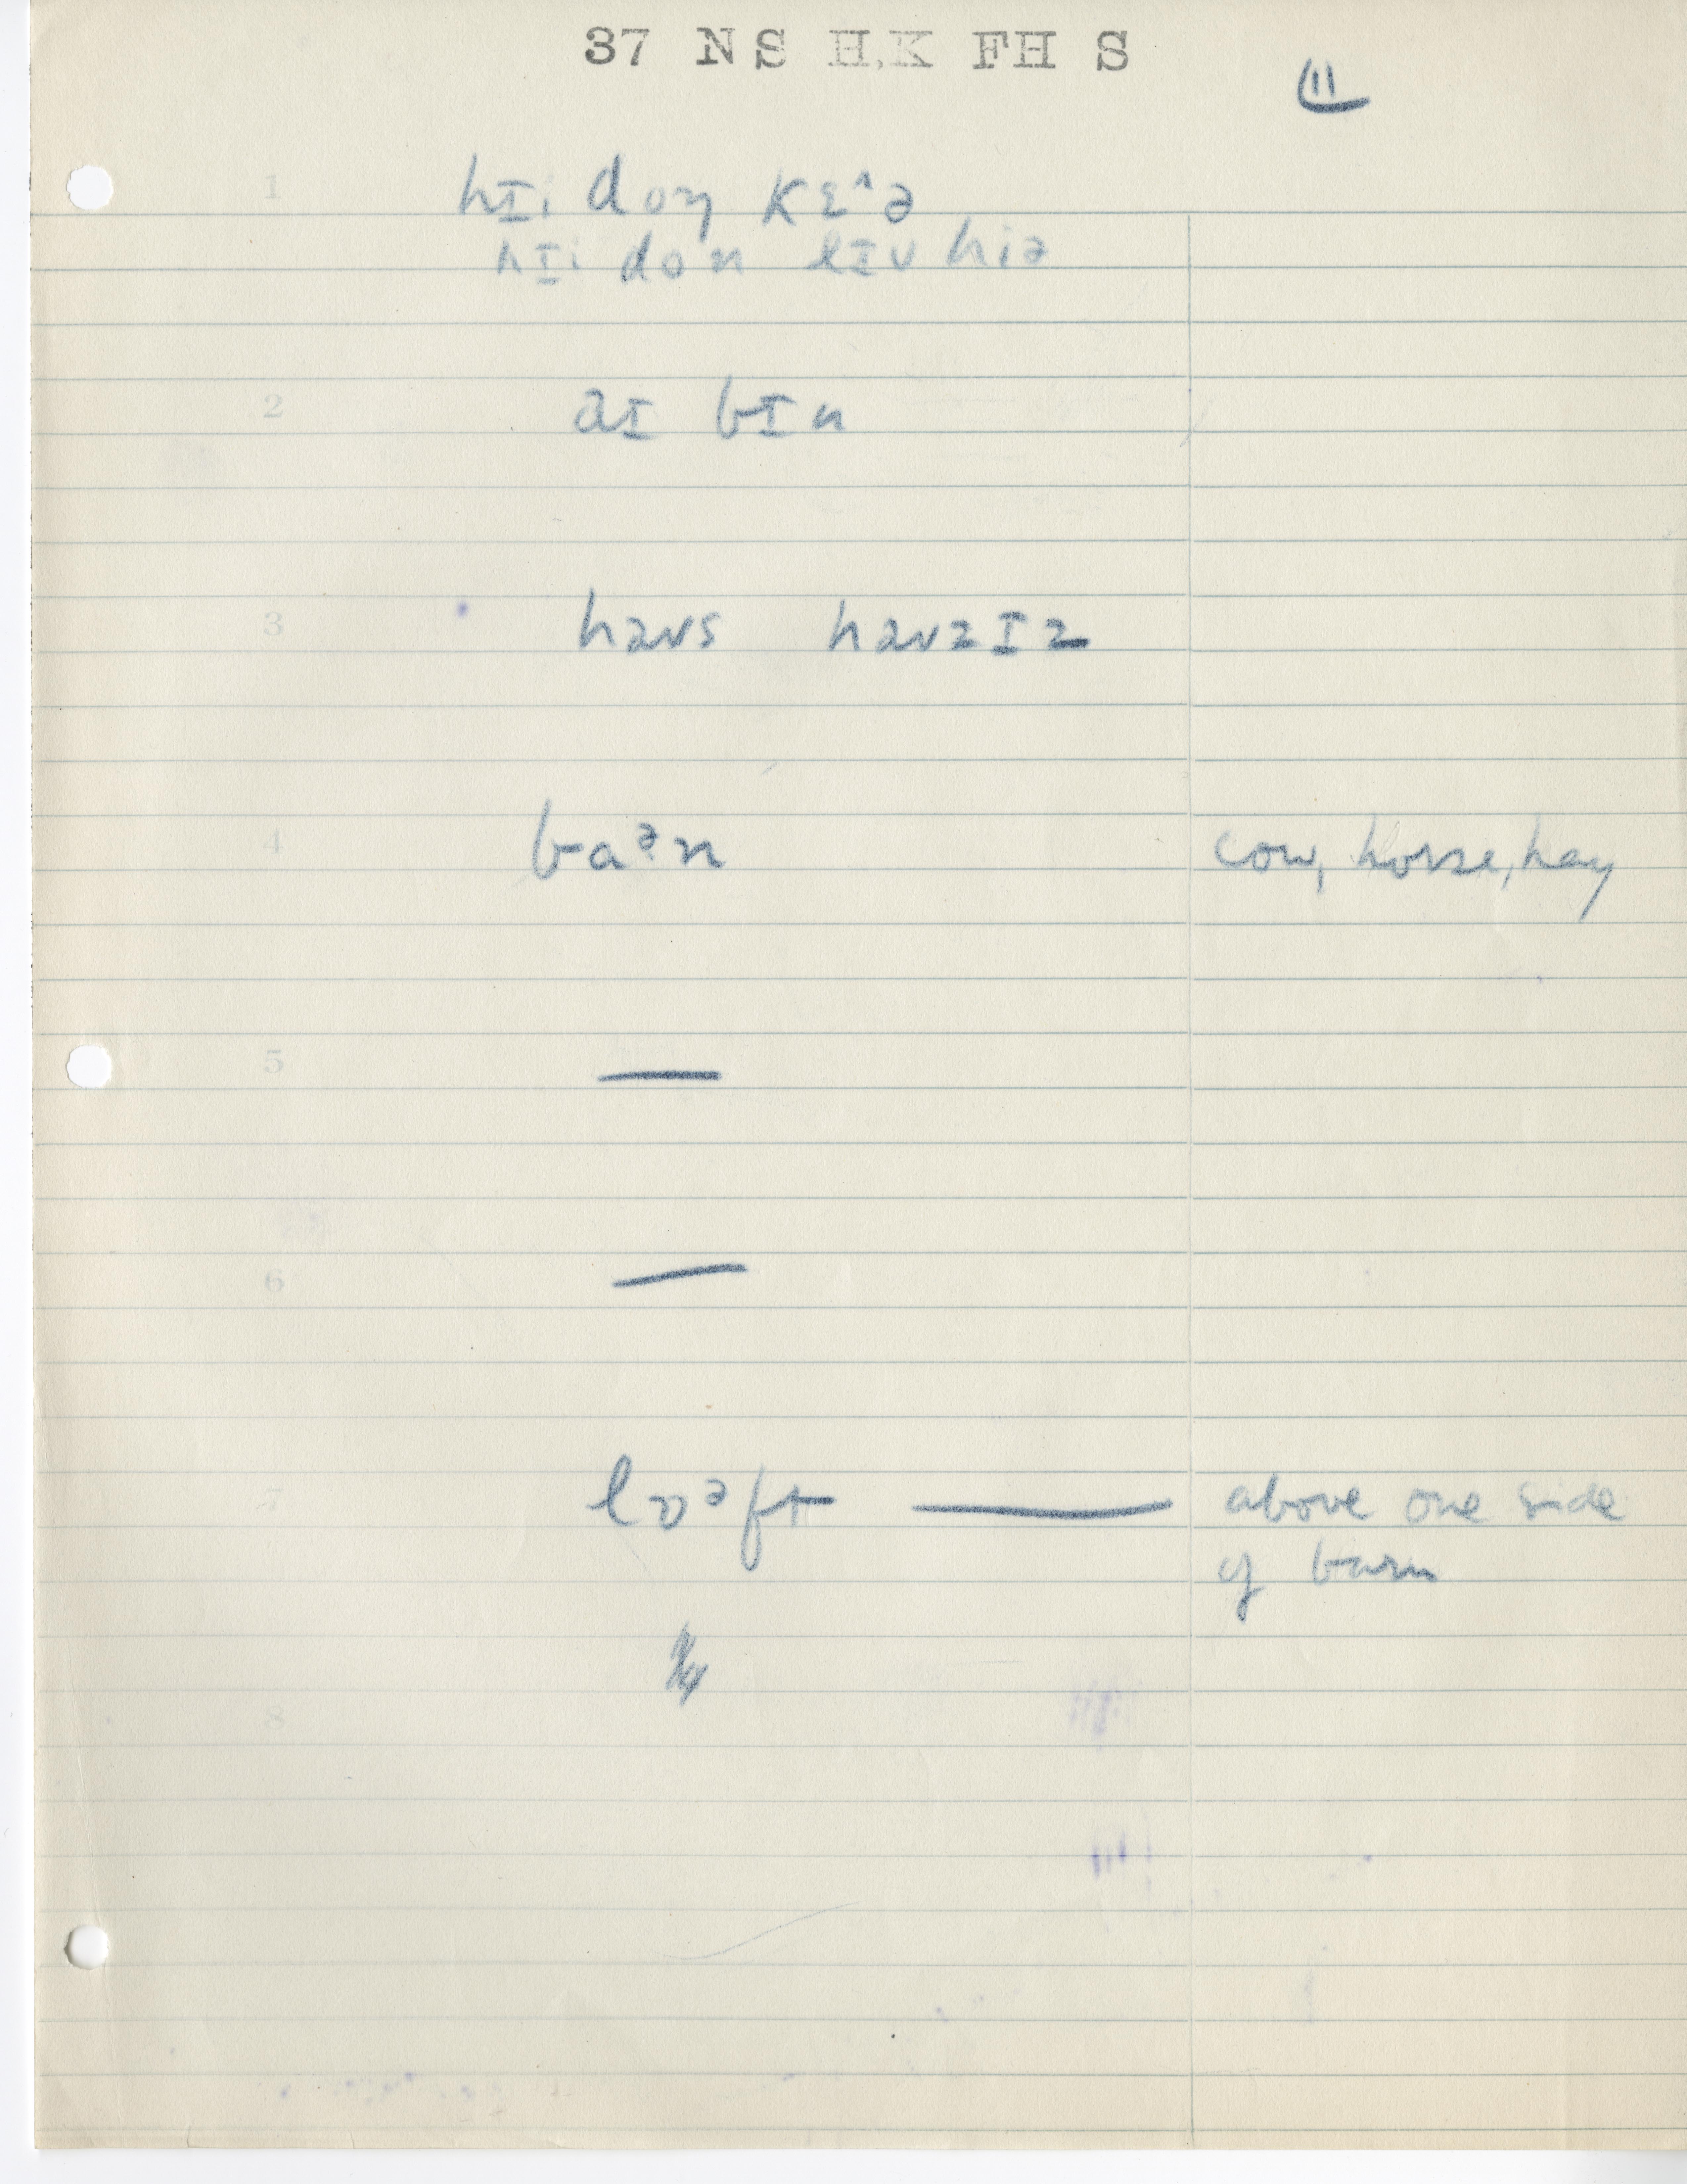 37 NS H.K FH S
11
1 hɪi doŋ kɛ^ə
hɪi don lɪv hiə
2 aɪ bɪn
3 haʊs haʊzɪz
4 ba ᵊn cow, horse, hay
5 —
6 —
7 lɒᵊft — above one side
of barn
8